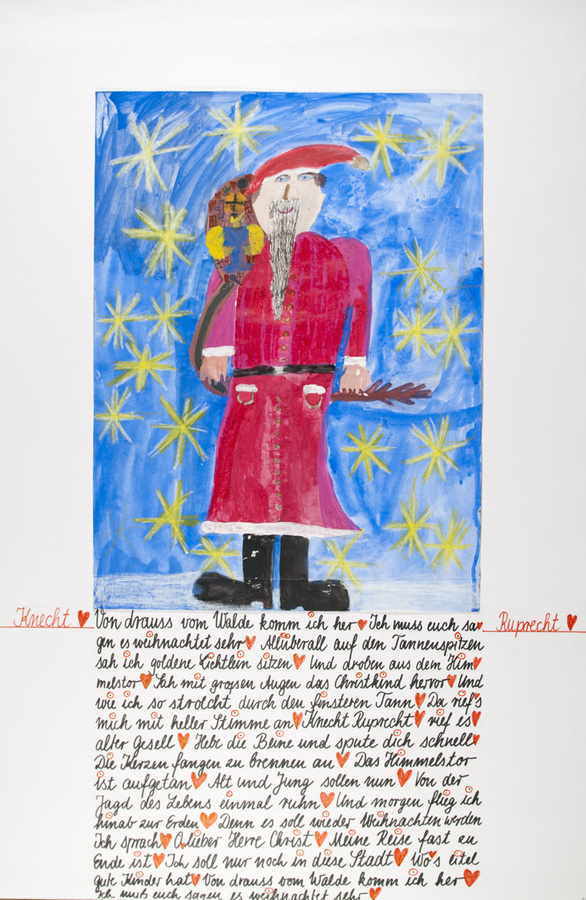 Knecht ♥ Von drauss vom Walde komm ich her ♥ Ich muss euch sa Ruprecht ♥
gen es weihnachtet sehr ♥ Allüberall auf den Tannenspitzen
sah ich goldene Lichtlein sitzen ♥ Und droben aus dem Him
melstor ♥ Sah mit grossen Augen das Christkind hervor ♥ Und
wie ich so strolcht durch den finsteren Tann ♥ Da rief's
mich mit heller Stimme an ♥ Knecht Ruprecht ♥ rief es ♥
alter Gesell ♥ Hebe die Beine und spute dich schnell ♥
Die Kerzen fangen zu brennen an ♥ Das Himmelstor
ist aufgetan ♥ Alt und Jung sollen nun ♥ Von der
Jagd des Lebens einmal ruhn ♥ Und morgen flieg ich
hinab zur Erden ♥ Denn es soll wieder Weihnachten werden
Ich sprach ♥ O lieber Herre Christ ♥ Meine Reise fast zu
Ende ist ♥ Ich soll nur noch in diese Stadt ♥ Wo's eitel
gute Kinder hat ♥ Von drauss vom Walde komm ich her ♥
Ich muss euch sagen es weihnachtet sehr ♥